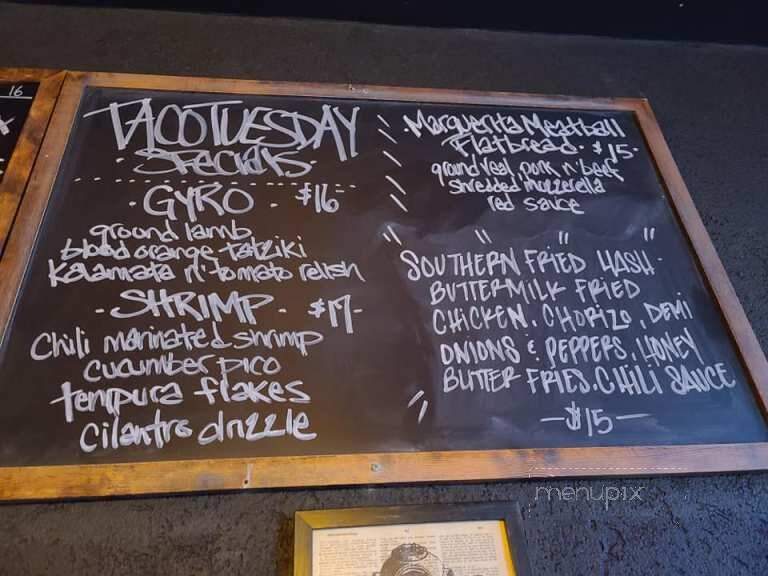 16
TACO TUESDAY
SPECIALS
GYRO - $16
ground lamb
blood orange tatziki
Kalamata n' tomato relish
- SHRIMP - $17
Chili marinated shrimp
cucumber pico
tempura flakes
cilantro drizzle
Marguerita Meatball
Flatbread - $15
ground veal, pork n' beef
shredded mozzerella
red sauce
SOUTHERN FRIED HASH
BUTTERMILK FRIED
CHICKEN, CHORIZO, DEMI
ONIONS & PEPPERS, HONEY
BUTTER FRIES, CHILI SAUCE
- $15 -
menupix